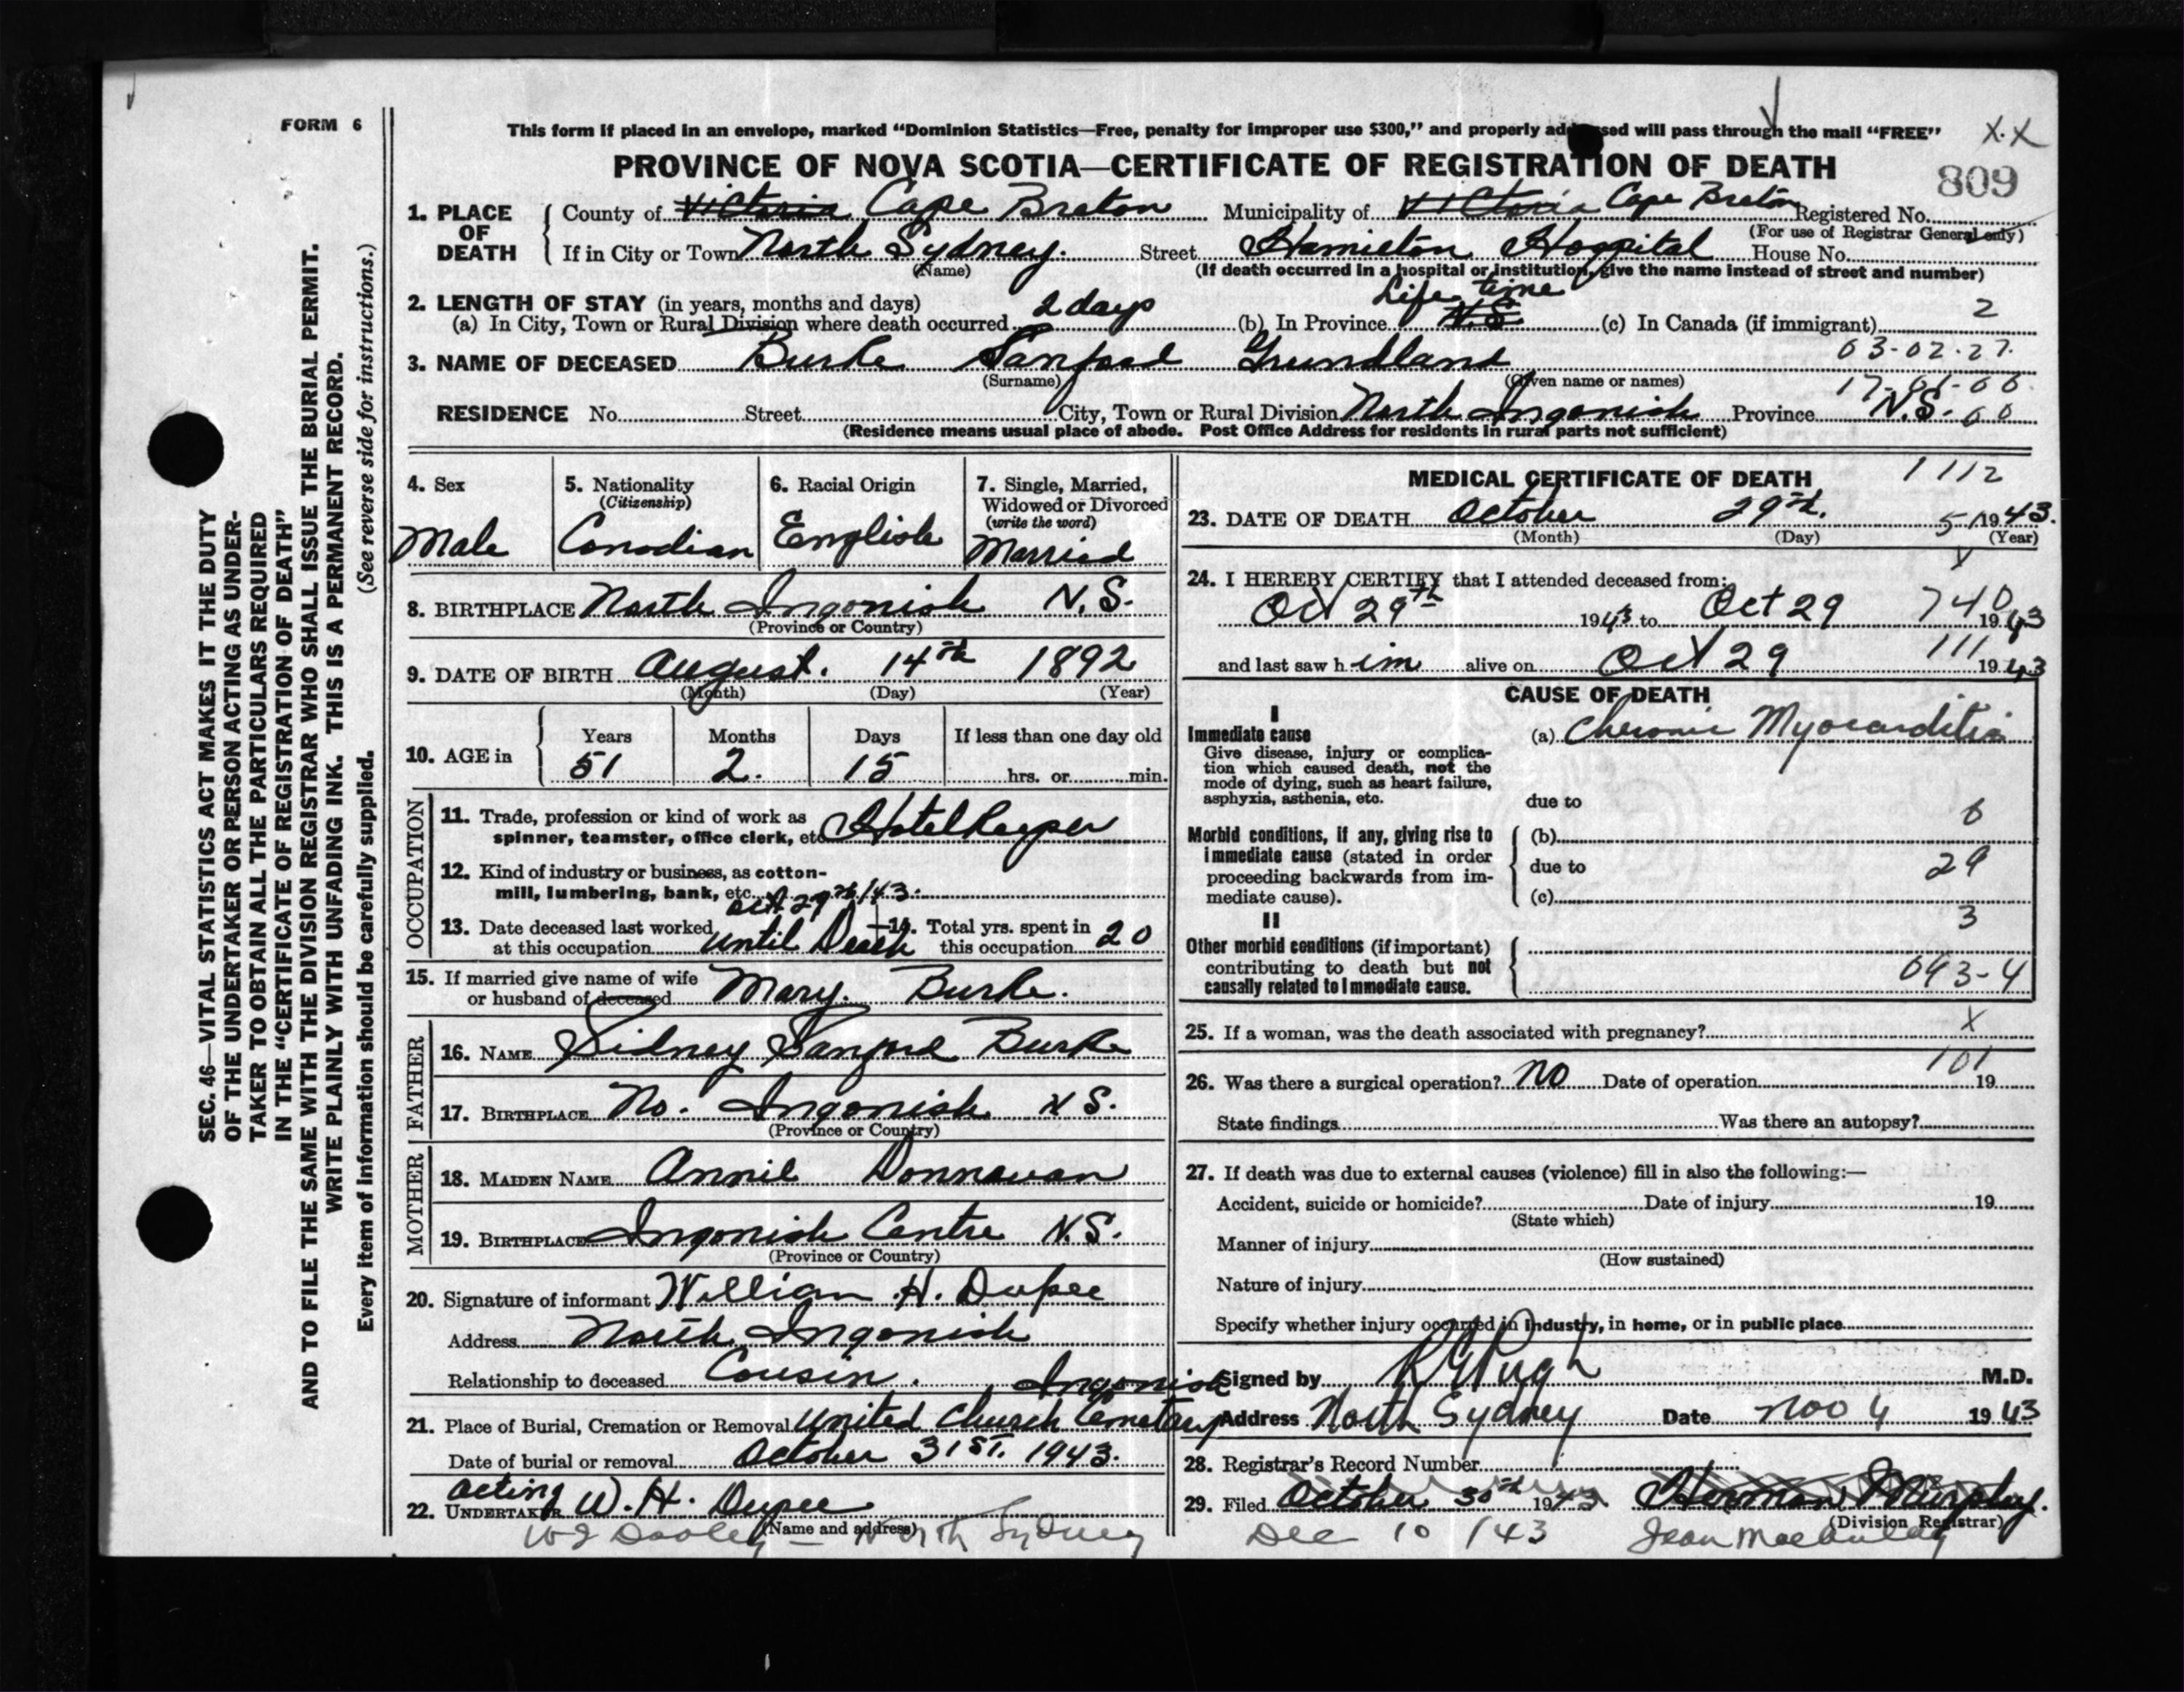 FORM 6
This form if placed in an envelope, marked “Dominion Statistics—Free, penalty for improper use $300,” and properly ad ssed will pass through the mail “FREE”
X.X
PROVINCE OF NOVA SCOTIA—CERTIFICATE OF REGISTRATION OF DEATH
809
1. PLACE OF DEATH
County of Victoria Cape Breton Municipality of Victoria Cape Breton Registered No.
(For use of Registrar General only)
If in City or Town North Sydney. Street Hamilton Hospital House No.
(Name) (If death occurred in a hospital or institution, give the name instead of street and number)
2. LENGTH OF STAY (in years, months and days)
Life time
(a) In City, Town or Rural Division where death occurred 2 days (b) In Province N.S. (c) In Canada (if immigrant) 2
03-02-27.
3. NAME OF DECEASED Burke Sanford Grundland
(Surname) (Given name or names)
RESIDENCE No. Street City, Town or Rural Division North Ingonish Province N.S.
(Residence means usual place of abode. Post Office Address for residents in rural parts not sufficient)
4. Sex
Male
5. Nationality
(Citizenship)
Canadian
6. Racial Origin
English
7. Single, Married,
Widowed or Divorced
(write the word)
Married
8. BIRTHPLACE North Ingonish N.S.
(Province or Country)
9. DATE OF BIRTH August. 14th 1892
(Month) (Day) (Year)
10. AGE in
Years Months Days If less than one day old
51 2. 15 hrs. or min.
OCCUPATION
11. Trade, profession or kind of work as
spinner, teamster, office clerk, etc. Hotel Keeper
12. Kind of industry or business, as cotton-
mill, lumbering, bank, etc.
Oct 29th/43.
13. Date deceased last worked
at this occupation until Death
14. Total yrs. spent in
this occupation 20
15. If married give name of wife
or husband of deceased Mary. Burke.
FATHER
16. NAME Sidney Sanford Burke
17. BIRTHPLACE No. Ingonish N S.
(Province or Country)
MOTHER
18. MAIDEN NAME Annie Donnavan
19. BIRTHPLACE Ingonish Centre N.S.
(Province or Country)
20. Signature of informant William .H. Dupee
Address North Ingonish
Relationship to deceased Cousin.
Ingonish
21. Place of Burial, Cremation or Removal United Church Cemetary
Date of burial or removal October 31ST. 1943.
acting
22. UNDERTAKER W. H. Dupee
(Name and address)
W J Dooley — North Sydney
MEDICAL CERTIFICATE OF DEATH
1112
23. DATE OF DEATH October 29th. 51 1943.
(Month) (Day) (Year)
X
24. I HEREBY CERTIFY that I attended deceased from:
Oct 29th 1943 to Oct 29 740 1943
and last saw h im alive on Oct 29 111 1943
CAUSE OF DEATH
I
Immediate cause
Give disease, injury or complica-
tion which caused death, not the
mode of dying, such as heart failure,
asphyxia, asthenia, etc.
(a) Chronic Myocarditis
due to
6
Morbid conditions, if any, giving rise to
immediate cause (stated in order
proceeding backwards from im-
mediate cause).
(b)
due to
29
(c)
3
II
Other morbid conditions (if important)
contributing to death but not
causally related to immediate cause.
093-4
25. If a woman, was the death associated with pregnancy? X
101
26. Was there a surgical operation? NO Date of operation 19
State findings Was there an autopsy?
27. If death was due to external causes (violence) fill in also the following:—
Accident, suicide or homicide? Date of injury 19
(State which)
Manner of injury
(How sustained)
Nature of injury
Specify whether injury occurred in industry, in home, or in public place
Signed by Pugh M.D.
Address North Sydney Date Nov 4 1943
28. Registrar's Record Number
29. Filed October 30th 1943 Herman Murphy.
(Division Registrar)
Dec 10 /43 Jean MacAulay
SEC. 46—VITAL STATISTICS ACT MAKES IT THE DUTY
OF THE UNDERTAKER OR PERSON ACTING AS UNDER-
TAKER TO OBTAIN ALL THE PARTICULARS REQUIRED
IN THE “CERTIFICATE OF REGISTRATION OF DEATH”
AND TO FILE THE SAME WITH THE DIVISION REGISTRAR WHO SHALL ISSUE THE BURIAL PERMIT.
WRITE PLAINLY WITH UNFADING INK. THIS IS A PERMANENT RECORD.
Every item of information should be carefully supplied. (See reverse side for instructions.)